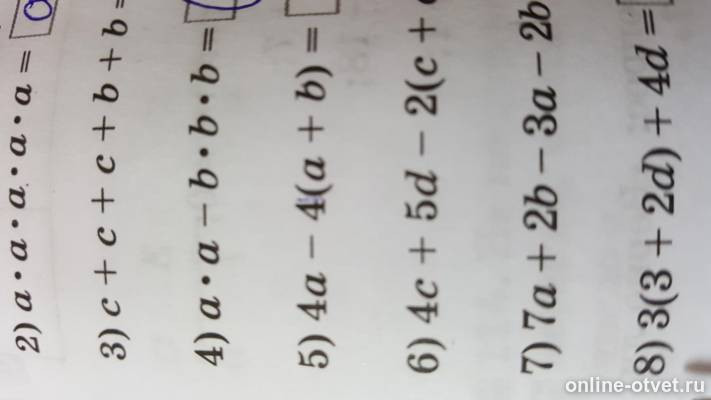 2) a • a • a • a • a =
3) c + c + c + b + b =
4) a • a − b • b • b =
5) 4a − 4(a + b) =
6) 4c + 5d − 2(c +
7) 7a + 2b − 3a − 2b
8) 3(3 + 2d) + 4d =
online-otvet.ru